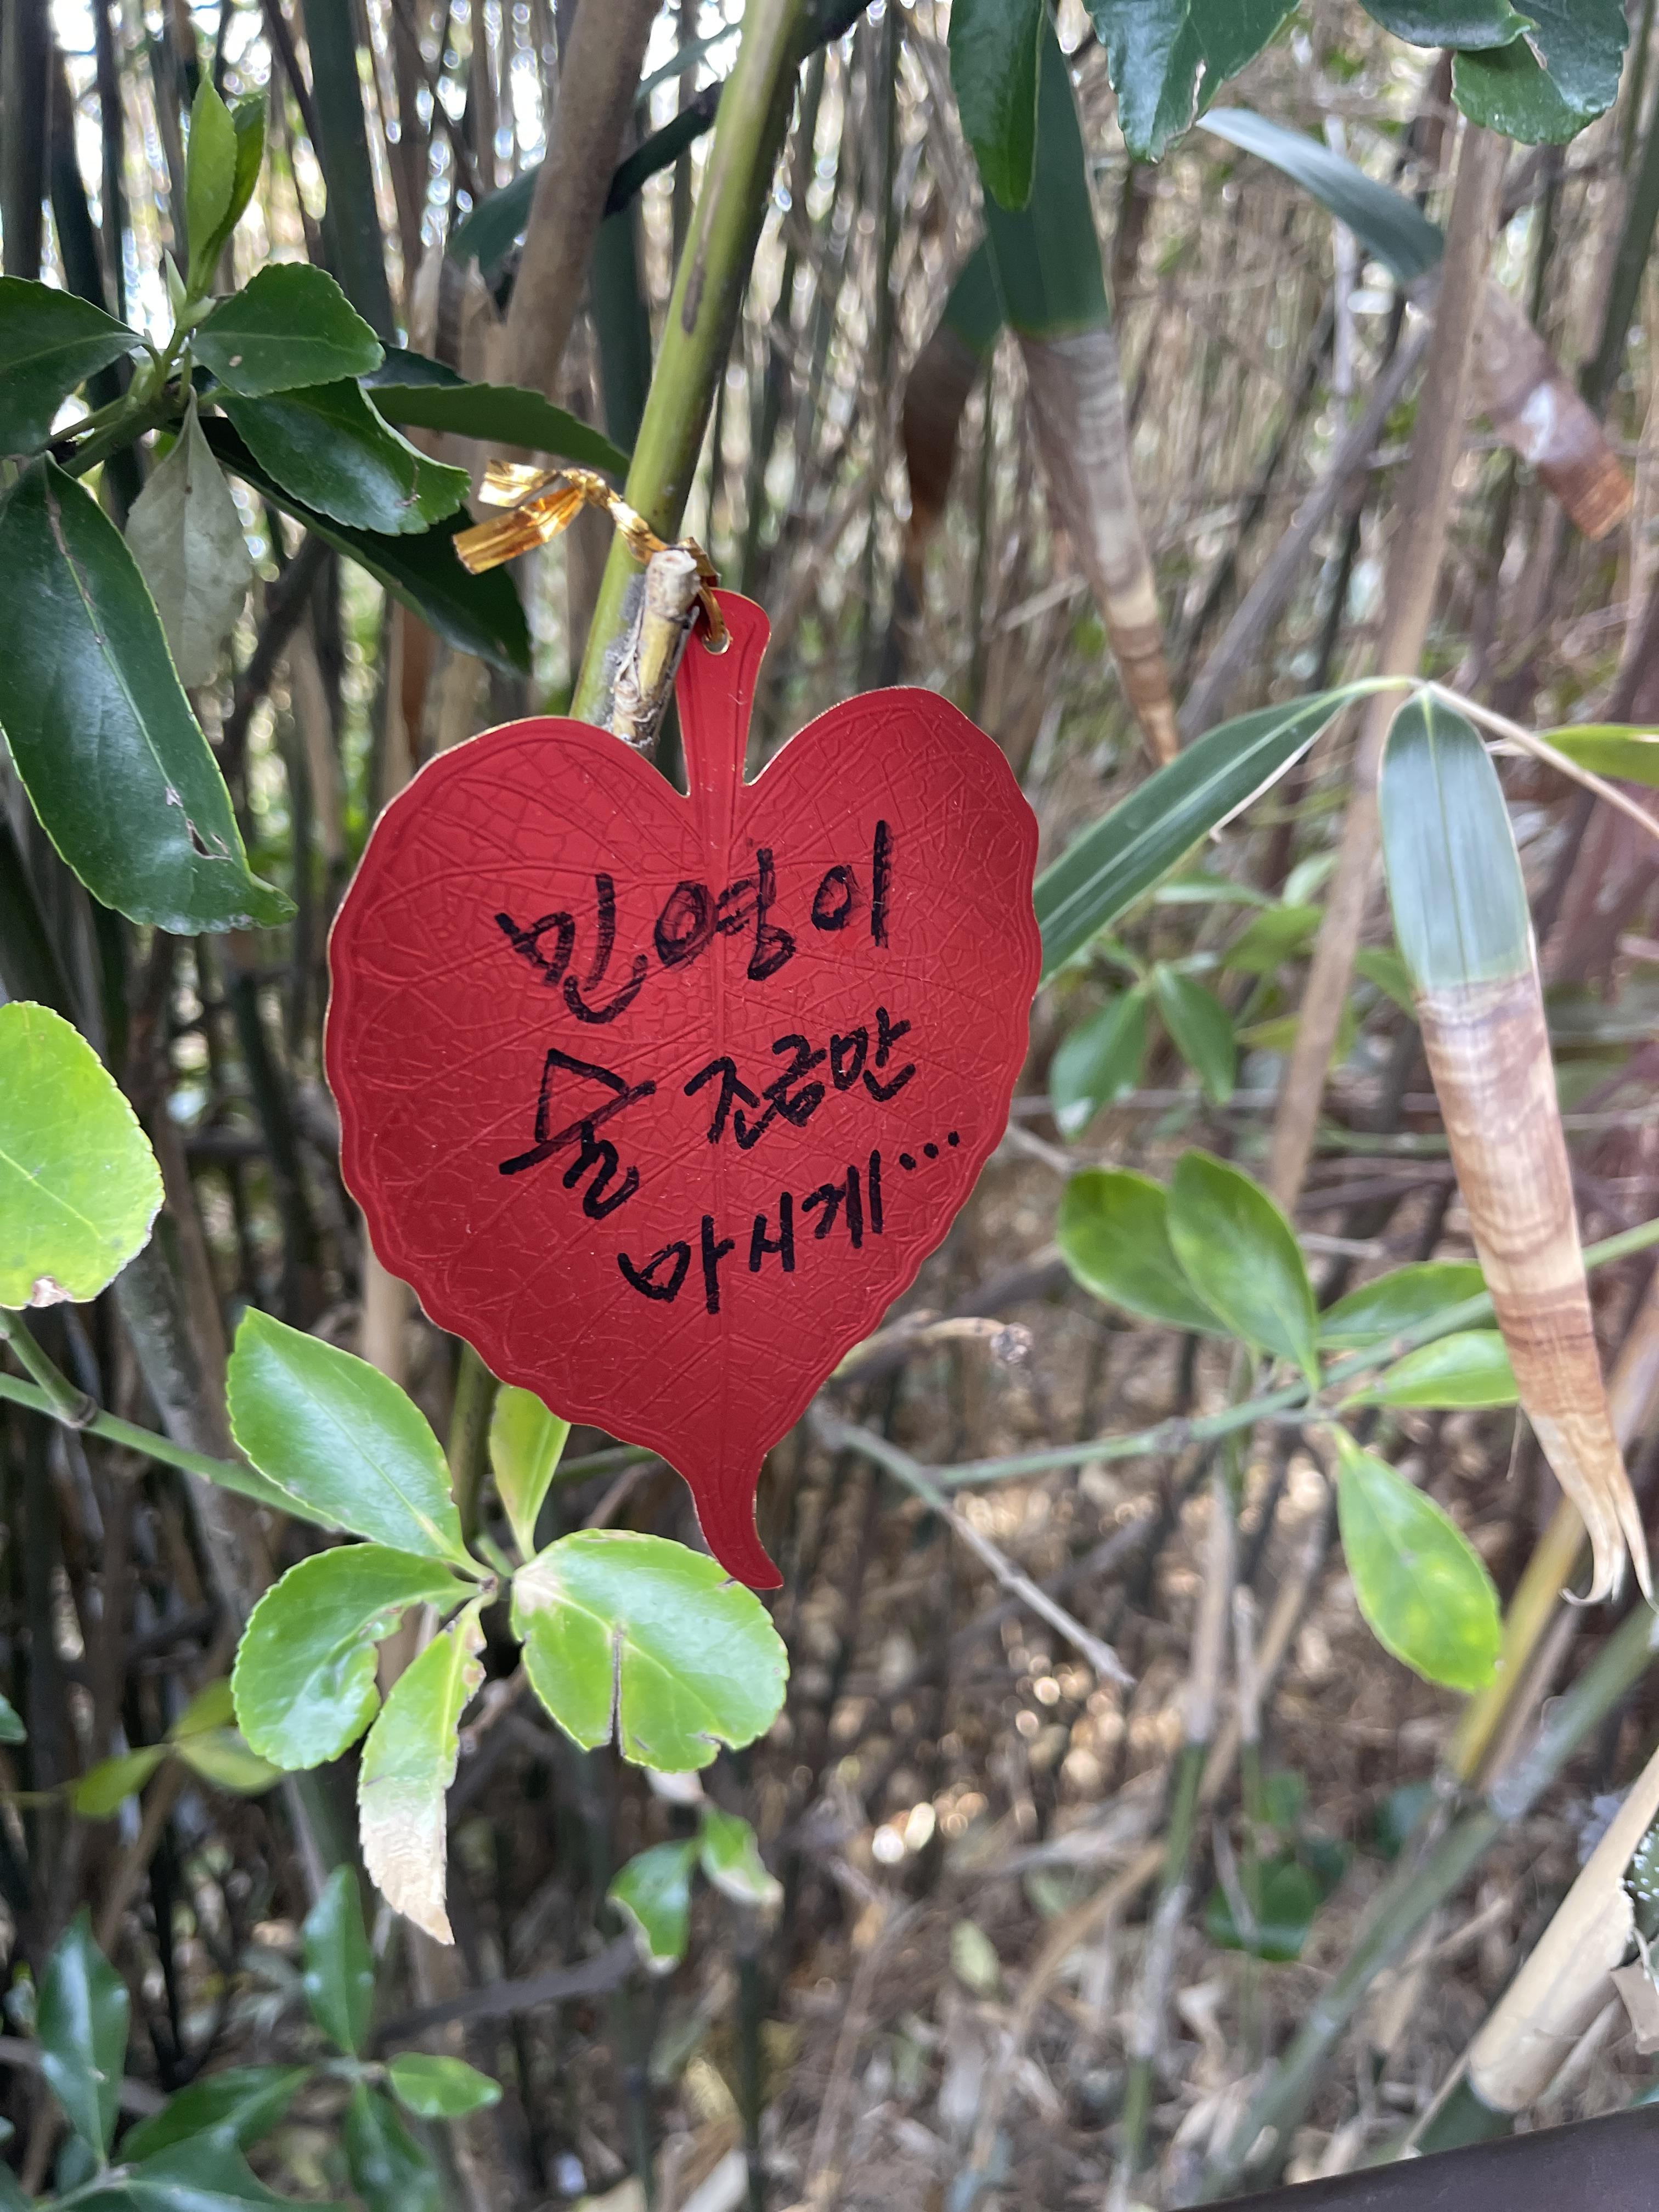 민영이
술 조금만
마시게...